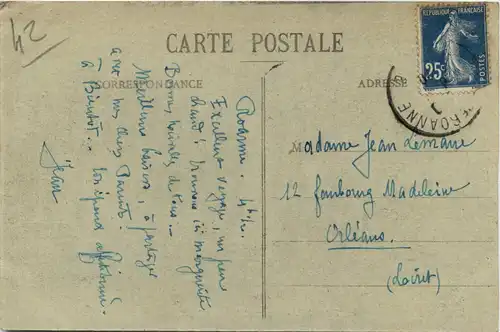 42
CARTE POSTALE
CORRESPONDANCE
ADRESSE
RÉPUBLIQUE FRANÇAISE
25c
POSTES
ROANNE
Roanne. 4h½.
Excellent voyage, un peu
chaud! trouvé ici marguerite
Bonnes nouvelles de tous :-
Meilleurs baisers, à partager
avec nos chers Parents.
à Bientôt. - Ton affectionné.
Jean
M
adame Jean Lemaire
12 faubourg Madeleine
Orléans.
(Loiret)